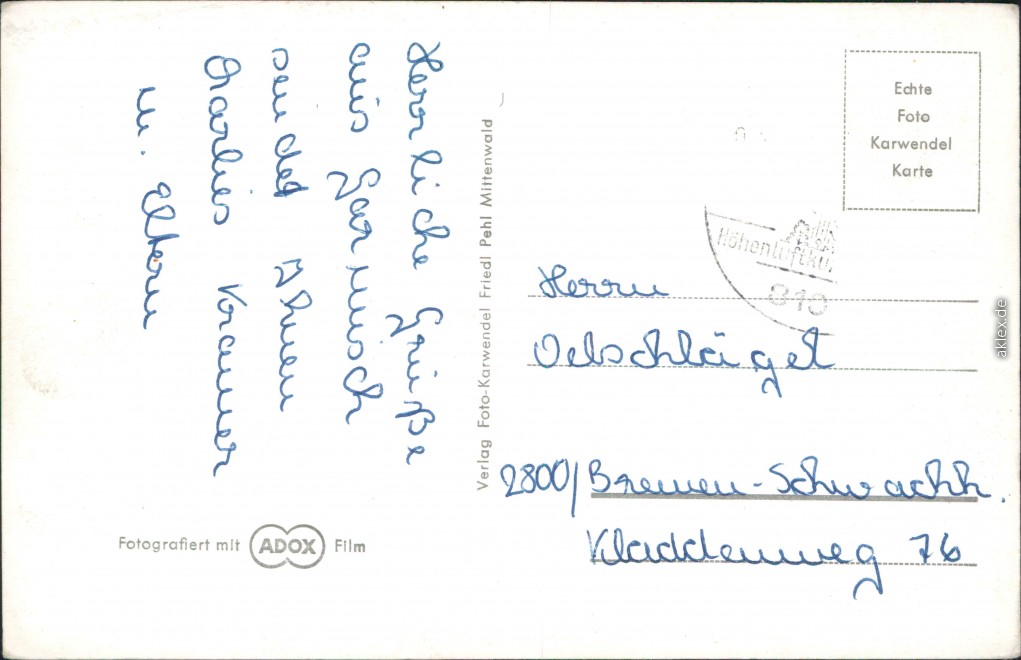 Herrliche Grüße
aus Garmisch
sendet Ihnen
Charlies Kramer
u. Eltern
Fotografiert mit ADOX Film
Verlag Foto-Karwendel Friedl Pehl Mittenwald
Echte
Foto
Karwendel
Karte
Höhenluftku
810
Herrn
Oelschläget
2800/Bremen-Schwachh.
Kladdenweg 76
aklex.de